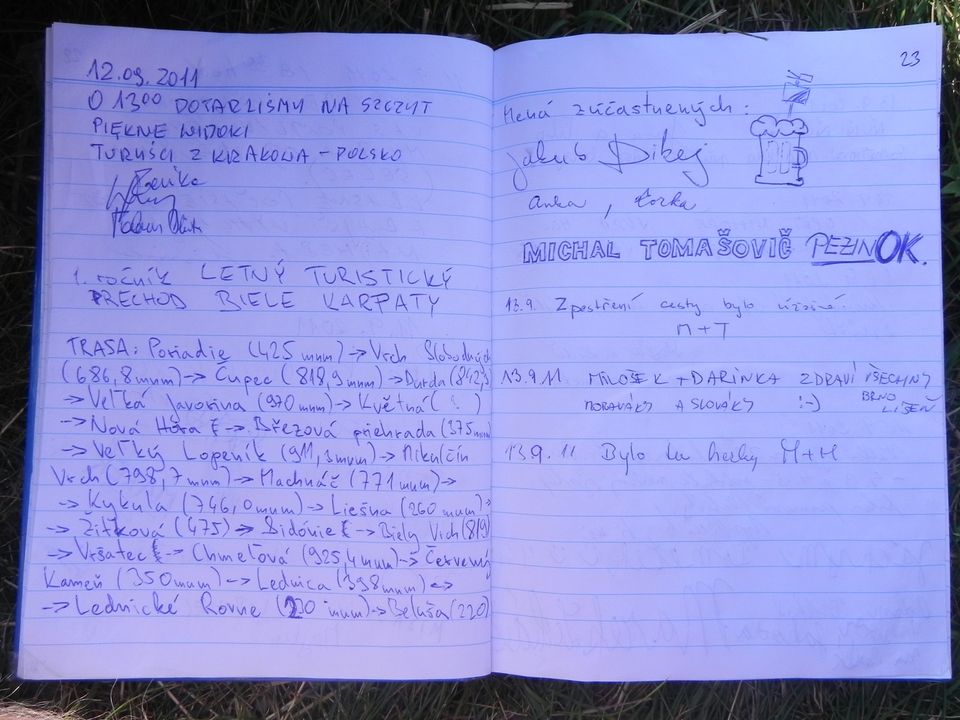 12.09.2011
O 13⁰⁰ DOTARLIŚMY NA SZCZYT
PIĘKNE WIDOKI
TURYŚCI Z KRAKOWA - POLSKO
1. ročník LETNÝ TURISTICKÝ
PRECHOD BIELE KARPATY
TRASA: Poriadie (425 mnm) -> Vrch Slobodných
(686,8 mnm) -> Čupec (818,9 mnm) -> Durda (842,
-> Veľká Javorina (970 mnm) -> Květná ( ? )
-> Nová Hora -> Březová priehrada (375 mnm)
-> Veľký Lopeník (911,3 mnm) -> Mikulčin
Vrch (798,7 mnm) -> Machnáč (771 mnm) ->
-> Kykula (746,0 mnm) -> Liešna (260 mnm) ->
-> Žitková (475) -> Sidónie -> Biely Vrch (819)
-> Vršatec -> Chmeľová (925,4 mnm) -> Červený
Kameň (350 mnm) -> Lednica (398 mnm) ->
-> Lednické Rovne (230 mnm) -> Beluša (220)
23
Mená zúčastnených :
Jakub Dikej
Anka ,
MICHAL TOMAŠOVIČ PEZINOK.
13.9. Zpestření cesty bylo úžasné.
M+T
13.9.11 MILOŠEK + DARINKA ZDRAVÍ VŠECHNY
MORAVÁKY A SLOVÁKY :-) BRNO
LÍŠEŇ
13.9.11 Bylo tu hezky M+H